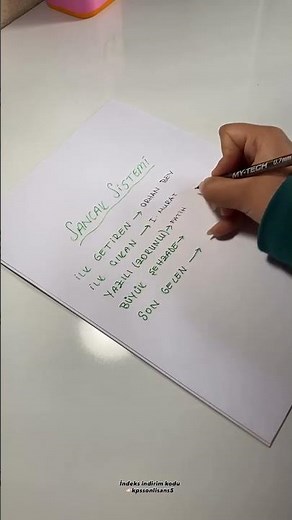 SANCAK SİSTEMİ
İLK GETİREN → ORHAN BEY
İLK ÇIKAN → I. MURAT
YAZILI (ZORUNLU) → FATİH
BÜYÜK ŞEHZADE →
SON GELEN →
MY-TECH 0.7mm
İndeks indirim kodu
kpssonlisans5